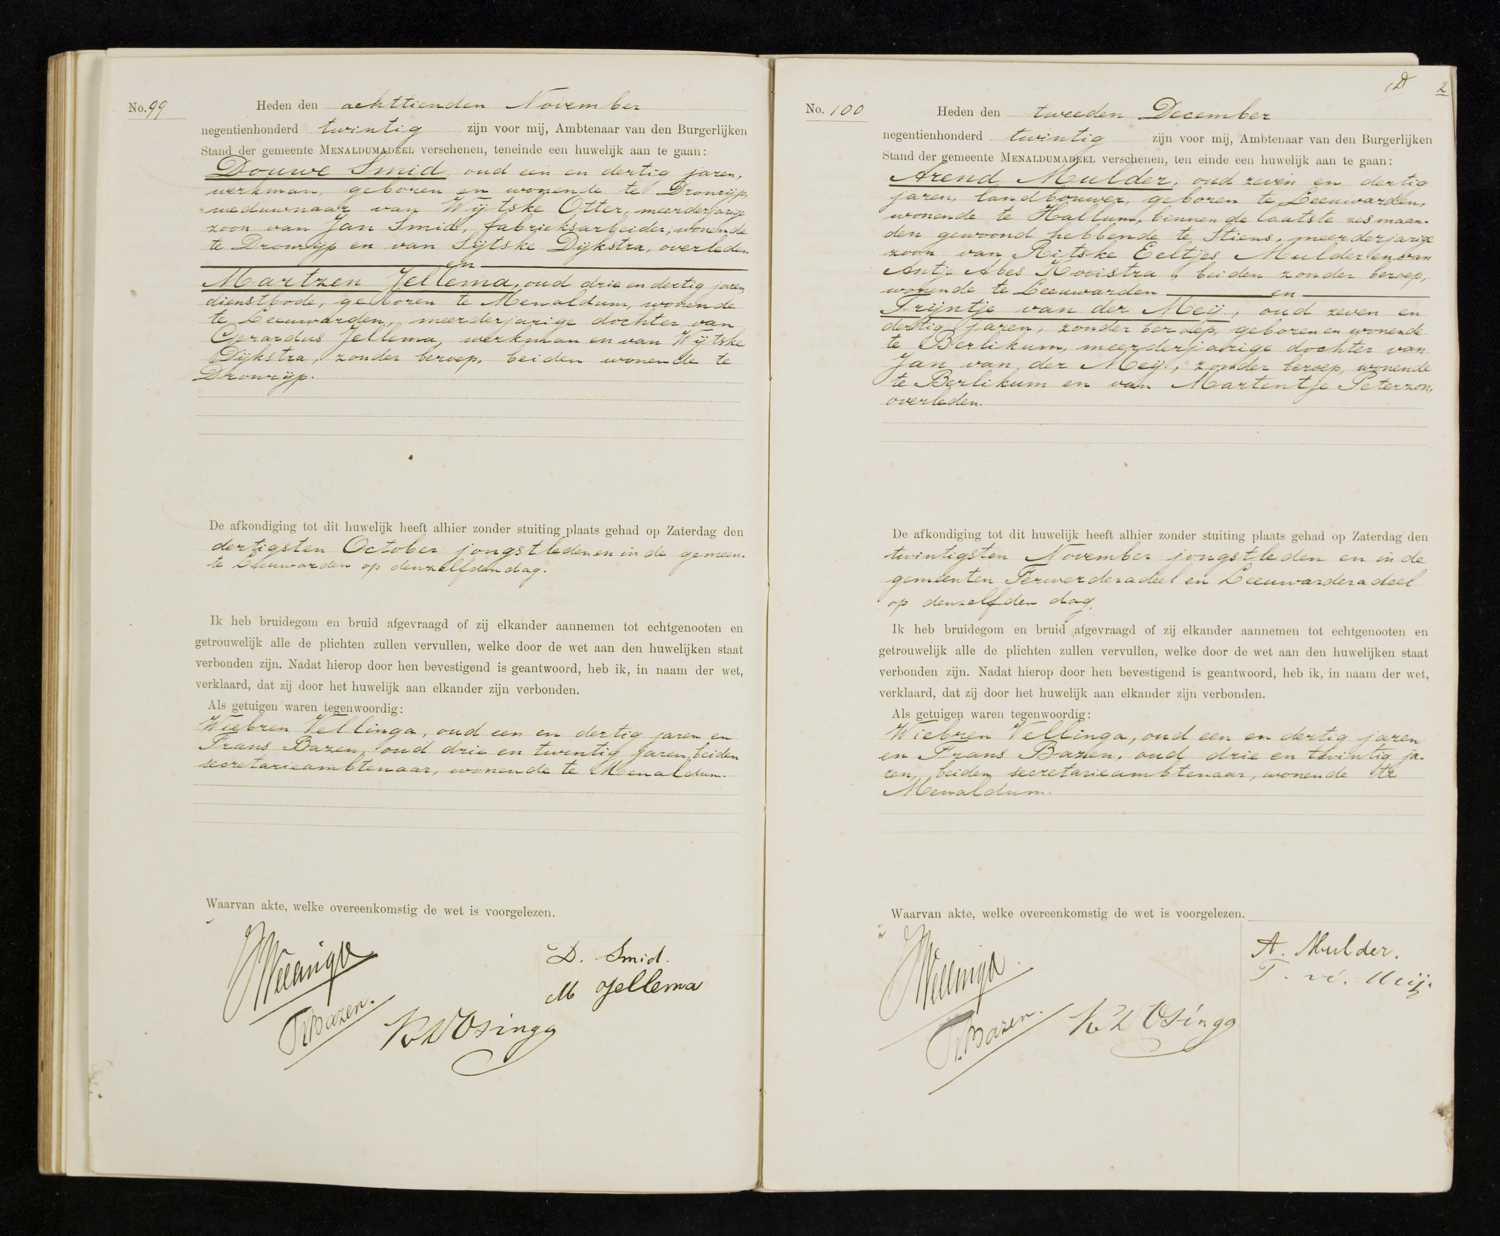 No. 99
Heden den achttienden November
negentienhonderd twintig zijn voor mij, Ambtenaar van den Burgerlijken
Stand der gemeente MENALDUMADEEL verschenen, teneinde een huwelijk aan te gaan:
Douwe Smid, oud een en dertig jaren,
werkman, geboren en wonende te Dronrijp,
weduwnaar van Wijtske Otter, meerderjarige
zoon van Jan Smid, fabrieksarbeider, wonende
te Dronrijp en van Sijtske Dijkstra, overleden
en
Martzen Jellema, oud drie en dertig jaren,
dienstbode, geboren te Menaldum, wonende
te Leeuwarden, meerderjarige dochter van
Gerardus Jellema, werkman en van Wijtske
Dijkstra, zonder beroep, beiden wonende te
Dronrijp.
De afkondiging tot dit huwelijk heeft alhier zonder stuiting plaats gehad op Zaterdag den
dertigsten October jongstleden en in de gemeen-
te Leeuwarden op denzelfden dag.
Ik heb bruidegom en bruid afgevraagd of zij elkander aannemen tot echtgenooten en
getrouwelijk alle de plichten zullen vervullen, welke door de wet aan den huwelijken staat
verbonden zijn. Nadat hierop door hen bevestigend is geantwoord, heb ik, in naam der wet,
verklaard, dat zij door het huwelijk aan elkander zijn verbonden.
Als getuigen waren tegenwoordig:
Wiebren Vellinga, oud een en dertig jaren en
Frans Bazen, oud drie en twintig jaren, beiden
secretarieambtenaar, wonende te Menaldum.
Waarvan akte, welke overeenkomstig de wet is voorgelezen.
WVellinga
D. Smid.
M Jellema
Fr Bazen.
KWOsinga
No. 100
Heden den tweeden December
negentienhonderd twintig zijn voor mij, Ambtenaar van den Burgerlijken
Stand der gemeente MENALDUMADEEL verschenen, ten einde een huwelijk aan te gaan:
Arend Mulder, oud zeven en dertig
jaren, landbouwer, geboren te Leeuwarden,
wonende te Hallum, binnen de laatste zes maan-
den gewoond hebbende te Stiens, meerderjarige
zoon van Rijtske Eeltjes Mulder en van
Antje Abes Kooistra, beiden zonder beroep,
wonende te Leeuwarden en
Trijntje van der Meij, oud zeven en
dertig jaren, zonder beroep, geboren en wonende
te Berlikum, meerderjarige dochter van
Jan van der Meij, zonder beroep, wonende
te Berlikum en van Martentje Peterzon,
overleden.
De afkondiging tot dit huwelijk heeft alhier zonder stuiting plaats gehad op Zaterdag den
twintigsten November jongstleden en in de
gemeenten Ferwerderadeel en Leeuwarderadeel
op denzelfden dag.
Ik heb bruidegom en bruid afgevraagd of zij elkander aannemen tot echtgenooten en
getrouwelijk alle de plichten zullen vervullen, welke door de wet aan den huwelijken staat
verbonden zijn. Nadat hierop door hen bevestigend is geantwoord, heb ik, in naam der wet,
verklaard, dat zij door het huwelijk aan elkander zijn verbonden.
Als getuigen waren tegenwoordig:
Wiebren Vellinga, oud een en dertig jaren
en Frans Bazen, oud drie en twintig ja-
ren, beiden secretarieambtenaar, wonende te
Menaldum.
Waarvan akte, welke overeenkomstig de wet is voorgelezen.
WVellinga
A. Mulder.
T. v.d. Meij.
Fr Bazen.
KWOsinga